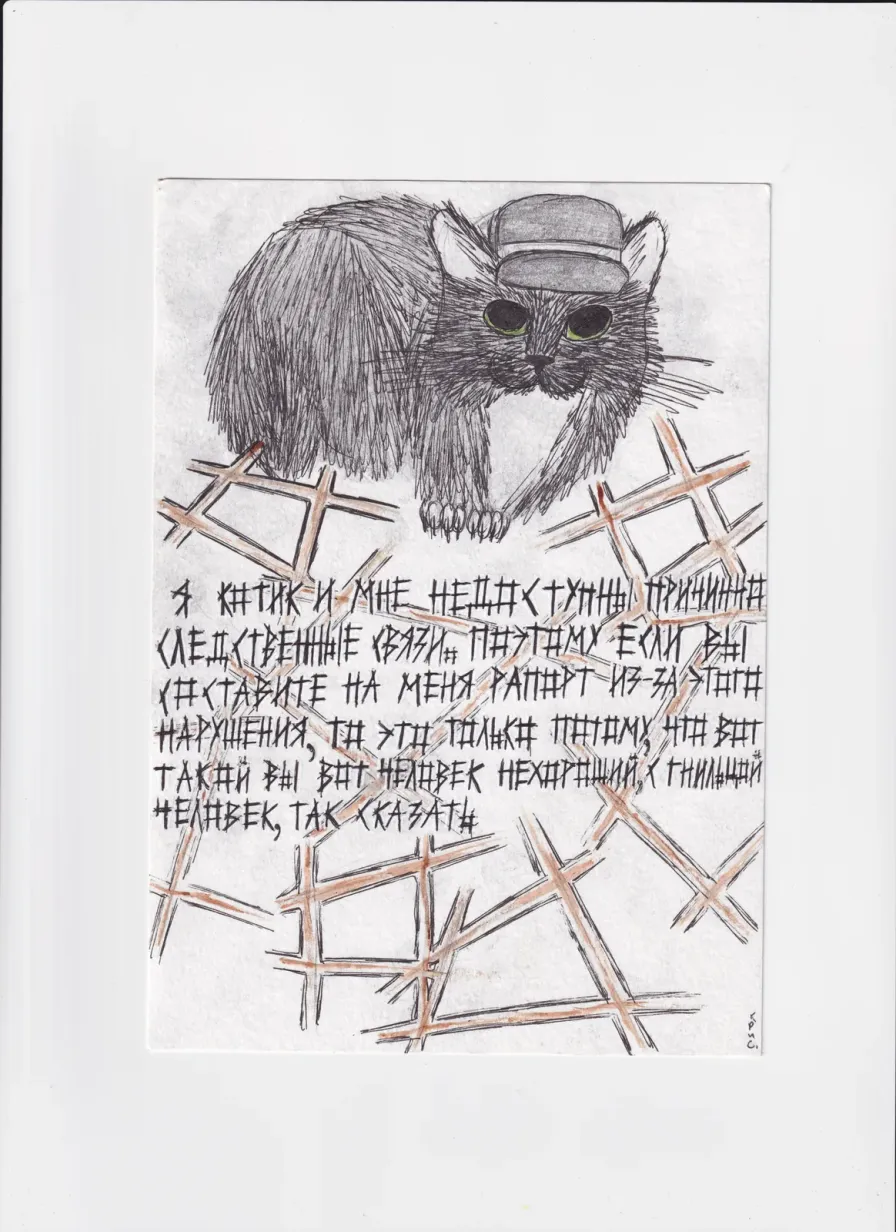 Я КОТИК И МНЕ НЕДОСТУПНЫ ПРИЧИННО
СЛЕДСТВЕННЫЕ СВЯЗИ. ПОЭТОМУ ЕСЛИ ВЫ
СОСТАВИТЕ НА МЕНЯ РАПОРТ ИЗ-ЗА ЭТОГО
НАРУШЕНИЯ, ТО ЭТО ТОЛЬКО ПОТОМУ, ЧТО ВОТ
ТАКОЙ ВЫ ВОТ ЧЕЛОВЕК НЕХОРОШИЙ, С ГНИЛЬЦОЙ
ЧЕЛОВЕК, ТАК СКАЗАТЬ
КРИС.